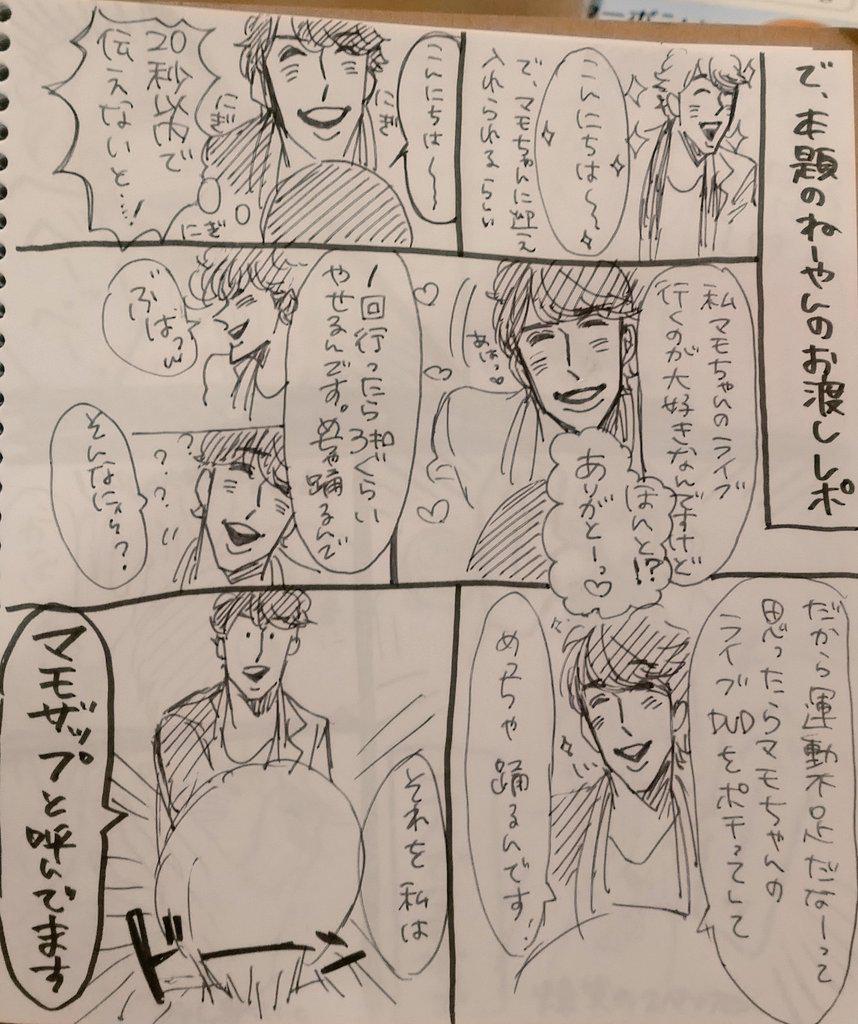 で、本題のねーやんのお渡しレポ
こんにちは〜
で、マモちゃんに迎え
入れられるらしい
こんにちは〜〜
にぎ
にぎ
にぎ
20秒以内で
伝えないと…!
私マモちゃんのライブ
行くのが大好きなんですけど
ほんと!?
ありがとーっ♡
1回行ったら3㌔ぐらい
やせるんです。めちゃ踊るんで
ぶはっw
???
そんなに!?
だから運動不足だなーって
思ったらマモちゃんの
ライブDVDをポチってして
めっちゃ踊るんです
それを私は
ドーン
マモザップと呼んでます